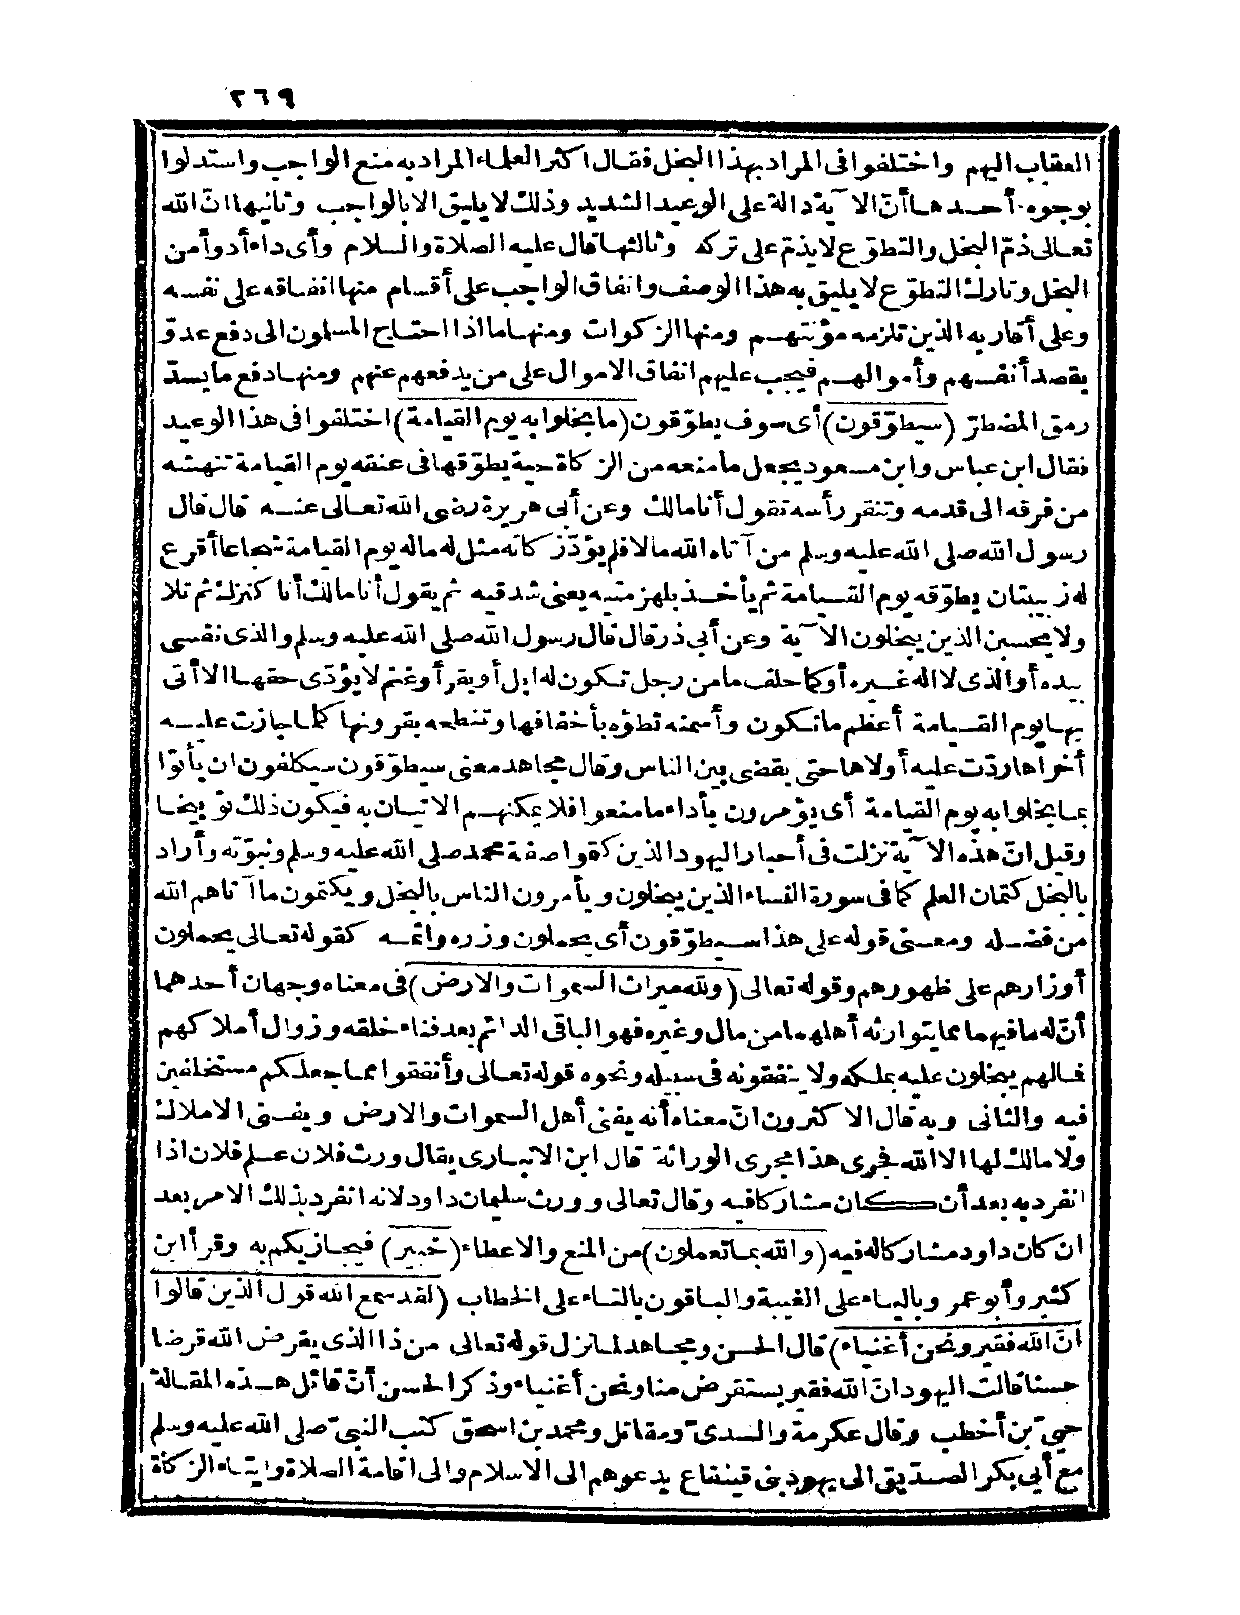 ٢٦٩
العقاب اليهم واختلفوا فى المراد بهذا البخل فقال أكثر العلماء المراد به منع الواجب واستدلوا
بوجوه أحدها أنّ الآية دالة على الوعيد الشديد وذلك لا يليق الا بالواجب وثانيها انّ الله
تعالى ذمّ البخل والتطوّع لا يذمّ على تركه وثالثها قال عليه الصلاة والسلام وأى داء أدوأ من
البخل وتارك التطوّع لا يليق به هذا الوصف وانفاق الواجب على أقسام منها انفاقه على نفسه
وعلى أقاربه الذين تلزمه مؤنتهم ومنها الزكوات ومنها ما اذا احتاج المسلمون الى دفع عدوّ
يقصد أنفسهم وأموالهم فيجب عليهم انفاق الاموال على من يدفعهم عنهم ومنها دفع ما يسدّ
رمق المضطرّ (سيطوّقون) أى سوف يطوّقون (ما بخلوا به يوم القيامة) اختلفوا فى هذا الوعيد
فقال ابن عباس وابن مسعود يجعل ما منعه من الزكاة حية يطوّقها فى عنقه يوم القيامة تنهشه
من فرقه الى قدمه وتنقر رأسه تقول أنا مالك وعن أبى هريرة رضى الله تعالى عنه قال قال
رسول الله صلى الله عليه وسلم من آتاه الله مالا فلم يؤدّ زكاته مثل له ماله يوم القيامة شجاعا أقرع
له زبيبتان يطوّقه يوم القيامة ثم يأخذ بلهزمتيه يعنى شدقيه ثم يقول أنا مالك أنا كنزك ثم تلا
ولا يحسبن الذين يبخلون الآية وعن أبى ذر قال قال رسول الله صلى الله عليه وسلم والذى نفسى
بيده أو الذى لا اله غيره أو كما حلف ما من رجل تكون له ابل أو بقر أو غنم لا يؤدّى حقها الا أتى
بها يوم القيامة أعظم ما تكون وأسمنه تطؤه بأخفافها وتنطحه بقرونها كلما جازت عليه
أخراها ردّت عليه أولاها حتى يقضى بين الناس وقال مجاهد معنى سيطوّقون سيكلفون ان يأتوا
بما بخلوا به يوم القيامة أى يؤمرون بأداء ما منعوا فلا يمكنهم الاتيان به فيكون ذلك توبيخا
وقيل انّ هذه الآية نزلت فى أحبار اليهود الذين كتموا صفة محمد صلى الله عليه وسلم ونبوّته وأراد
بالبخل كتمان العلم كما فى سورة النساء الذين يبخلون ويأمرون الناس بالبخل ويكتمون ما آتاهم الله
من فضله ومعنى قوله على هذا سيطوّقون أى يحملون وزره واثمه كقوله تعالى يحملون
أوزارهم على ظهورهم وقوله تعالى (ولله ميراث السموات والارض) فى معناه وجهان أحدهما
أنّ له ما فيهما مما يتوارثه أهلهما من مال وغيره فهو الباقى الدائم بعد فناء خلقه وزوال أملاكهم
فما لهم يبخلون عليه بملكه ولا ينفقونه فى سبيله ونحوه قوله تعالى وأنفقوا مما جعلكم مستخلفين
فيه والثانى وبه قال الاكثرون انّ معناه أنه يفنى أهل السموات والارض ويفنى الاملاك
ولا مالك لها الا الله فجرى هذا مجرى الوراثة قال ابن الانبارى يقال ورث فلان علم فلان اذا
انفرد به بعد أن كان مشاركا فيه وقال تعالى وورث سليمان داود لانه انفرد بذلك الامر بعد
ان كان داود مشاركا له فيه (والله بما تعملون) من المنع والاعطاء (خبير) فيجازيكم به وقرأ ابن
كثير وأبو عمرو بالياء على الغيبة والباقون بالتاء على الخطاب (لقد سمع الله قول الذين قالوا
انّ الله فقير ونحن أغنياء) قال الحسن ومجاهد لما نزل قوله تعالى من ذا الذى يقرض الله قرضا
حسنا قالت اليهود انّ الله فقير يستقرض منا ونحن أغنياء وذكر الحسن أنّ قائل هذه المقالة
حيىّ بن أخطب وقال عكرمة والسدىّ ومقاتل ومحمد بن اسحق كتب النبىّ صلى الله عليه وسلم
مع أبى بكر الصدّيق الى يهود بنى قينقاع يدعوهم الى الاسلام والى اقامة الصلاة وايتاء الزكاة